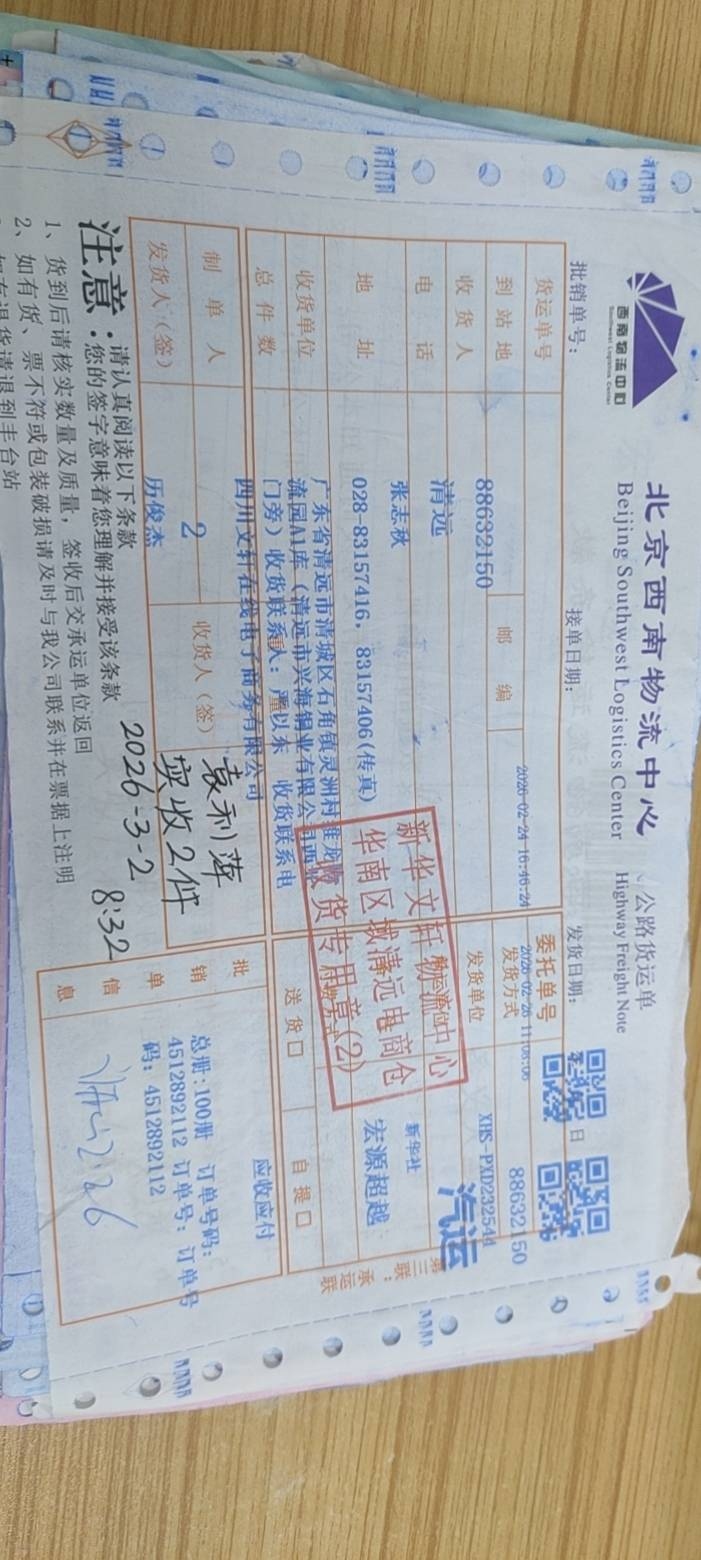 西南物流中心
Southwest Logistics Center
北京西南物流中心
Beijing Southwest Logistics Center
公路货运单
Highway Freight Note
批销单号：
接单日期：
发货日期：
日
2026-02-24 16:46:24
2026-02-26 11:08:06
货运单号
88632150
邮编
委托单号
88632150
到站地
清远
发货方式
XHS-PXD232544
汽运
收货人
张志秋
发货单位
新华社
电话
028-83157416, 83157406(传真)
宏源超越
地址
广东省清远市清城区石角镇灵洲村
流园A1库（清远市兴海铜业有限公司西
门旁）收货联系人：严以东 收货联系电
收货单位
四川文轩在线电子商务有限公司
送货口
自提口
应收应付
总件数
2
制单人
历俊杰
收货人（签）
袁利萍
实收2件
2026-3-2 8:32
发货人（签）
批销单信息
总册：100册 订单号码：
4512892112 订单号：订单号
码：4512892112
新华文轩物流中心
华南区域清远电商仓
收货专用章(2)
第三联：承运联
注意：
请认真阅读以下条款
您的签字意味着您理解并接受该条款
1、货到后请核实数量及质量，签收后交承运单位返回
2、如有货、票不符或包装破损请及时与我公司联系并在票据上注明
如有退货请退到丰台站